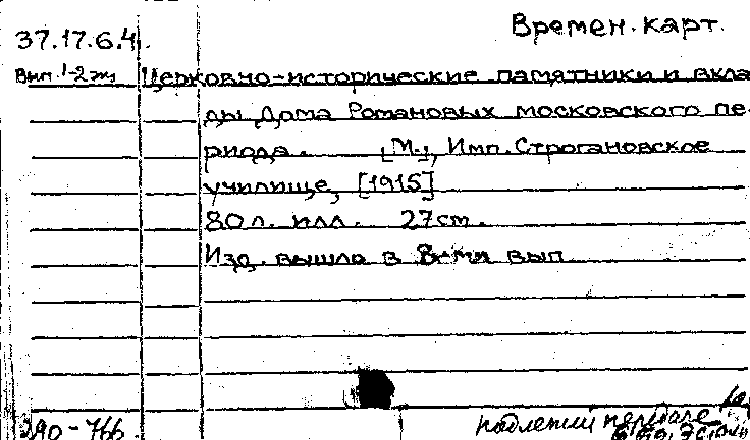 Времен. карт.
37.17.6.4.
Вып. 1-2 жз Церковно-исторические памятники и вкла
ды Дома Романовых московского пе-
риода. [М.], Имп. Строгановское
училище, [1915]
80 л. илл. 27 см.
Изд. вышло в 8-ми вып
290-766
подлежит передаче